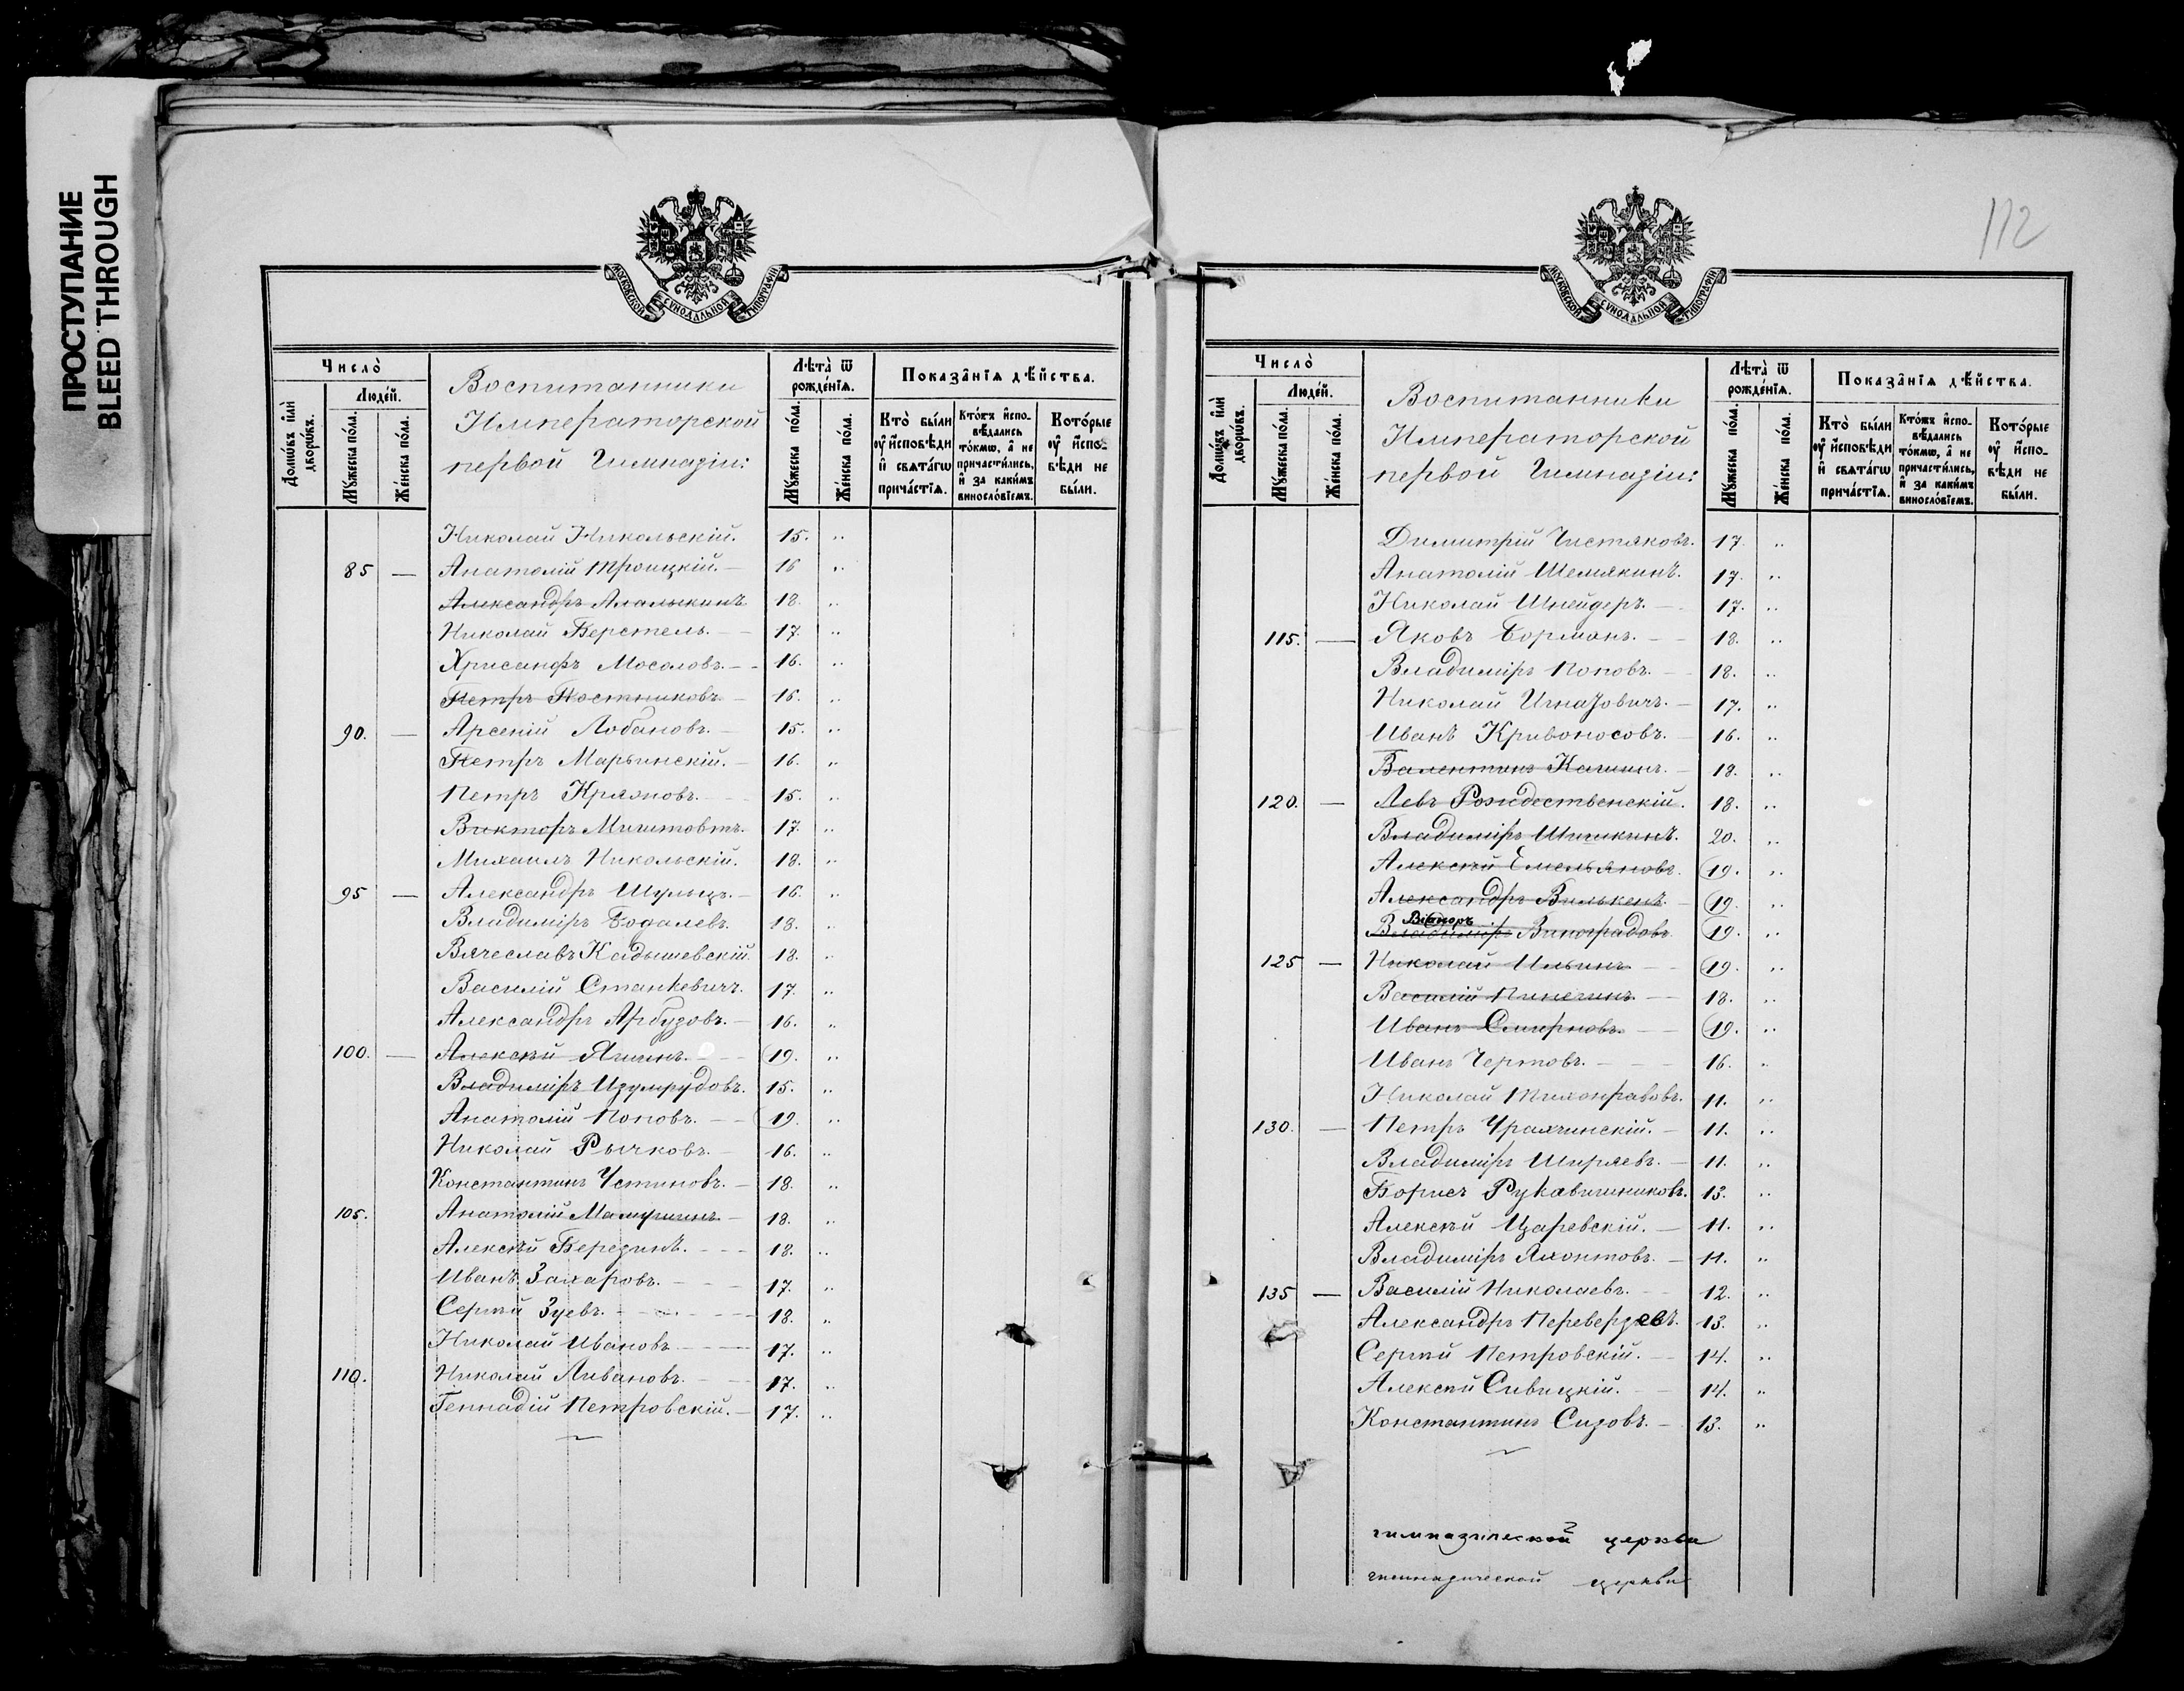 ПРОСТУПАНИЕ
BLEED THROUGH
МОСКОВСКОЙ СУНОДАЛЬНОЙ ТИПОГРАФІИ
Число̀
Люде́й.
Домѡ́въ и҆лѝ дворѡ́въ.
Мꙋ́жеска по́ла.
Же́нска по́ла.
Воспитанники
Императорской
первой Гимназіи:
Лѣта̀ ѿ рожде́нїѧ.
Мꙋ́жеска по́ла.
Же́нска по́ла.
Показа̑нїѧ дѣ́йства.
Кто̀ бы́ли оу҆ и҆сповѣ́ди и҆ свѧта́гѡ прича́стїѧ.
Кто́жъ и҆сповѣ́дались то́кмѡ, а҆ не причасти́лись, и҆ за каки́мъ виносло́вїемъ.
Кото́рые оу҆ и҆сповѣ́ди не бы́ли.
Николай Никольскій. 15. "
85 — Анатолій Троицкій. — 16 "
Александръ Алалыкинъ 18. "
Николай Берстель. — 17. "
Хрисанфъ Мосоловъ. — 16. "
Петръ Постниковъ — 16. "
90. — Арсеній Лобановъ. — 15. "
Петръ Марьинскій. — 16. "
Петръ 15. "
Викторъ Миштовтъ. 17. "
Михаилъ Никольскій. 18. "
95 — Александръ Шульцъ. — 16. "
Владиміръ Богалевъ. 18. "
Вячеславъ Кадышевскій. 18. "
Василій Станкевичъ. 17. "
Александръ Арбузовъ. — 16. "
100. — Алексѣй Ягинъ. — 19. "
Владиміръ Изумрудовъ. 15. "
Анатолій Поповъ. — 19. "
Николай Рычковъ. — 16. "
Константинъ Устиновъ. — 18. "
105. Анатолій — 18. "
Алексѣй Березинъ. — 18. "
Иванъ Захаровъ. — 17. "
Сергѣй Зуевъ. — 18. "
Николай Ивановъ — 17. "
110. Николай Ливановъ. — 17. "
Геннадій Петровскій. — 17. "
112
МОСКОВСКОЙ СУНОДАЛЬНОЙ ТИПОГРАФІИ
Число̀
Люде́й.
Домѡ́въ и҆лѝ дворѡ́въ.
Мꙋ́жеска по́ла.
Же́нска по́ла.
Воспитанники
Императорской
первой Гимназіи:
Лѣта̀ ѿ рожде́нїѧ.
Мꙋ́жеска по́ла.
Же́нска по́ла.
Показа̑нїѧ дѣ́йства.
Кто̀ бы́ли оу҆ и҆сповѣ́ди и҆ свѧта́гѡ прича́стїѧ.
Кто́жъ и҆сповѣ́дались то́кмѡ, а҆ не причасти́лись, и҆ за каки́мъ виносло́вїемъ.
Кото́рые оу҆ и҆сповѣ́ди не бы́ли.
Димитрій Чистяковъ. 17. "
Анатолій Шемякинъ. 17. "
Николай Шнейдеръ. — 17. "
115. — Яковъ Борманъ. — 18. "
Владиміръ Поповъ. — 18. "
Николай Игнатовичъ. — 17. "
Иванъ Кривоносовъ. — 16. "
Валентинъ Качинъ. — 18. "
120. — Левъ Рождественскій. 18. "
Владиміръ Шишкинъ. 20. "
Алексѣй Емельяновъ. 19. "
Александръ Вилькенъ. — 19. "
Віаноръ
Владиміръ Виноградовъ 19. "
125 — Николай Ильинъ — 19. "
Василій Пинегинъ — 18. "
Иванъ Смирновъ. — 19. "
Иванъ Чертовъ. — 16. "
Николай Тихонравовъ. 11. "
130. — Петръ — 11. "
Владиміръ Ширяевъ. — 11. "
Борисъ Рукавишниковъ. 13. "
Алексѣй Царевскій. — 11. "
Владиміръ Яхонтовъ. — 11. "
135 — Василій Николаевъ. — 12. "
Александръ Переверзевъ. 13. "
Сергѣй Петровскій. — 14. "
Алексѣй Сивицкій. — 14. "
Константинъ Сизовъ. — 13. "
гимназической церкви
гимназической церкви